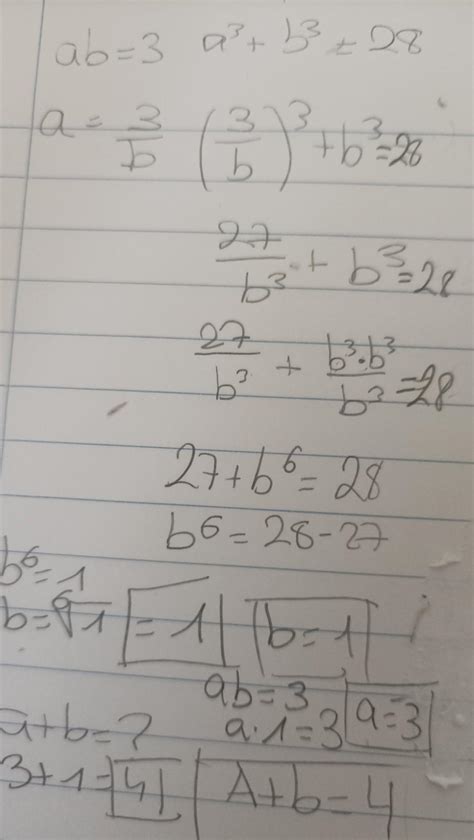 ab = 3 a³ + b³ = 28
a = 3/b (3/b)³ + b³ = 28
27/b³ + b³ = 28
27/b³ + b³·b³/b³ = 28
27 + b⁶ = 28
b⁶ = 28 - 27
b⁶ = 1
b = ⁶√1 = 1 b = 1
ab = 3
a + b = ? a·1 = 3 a = 3
3 + 1 = 4 A + b = 4